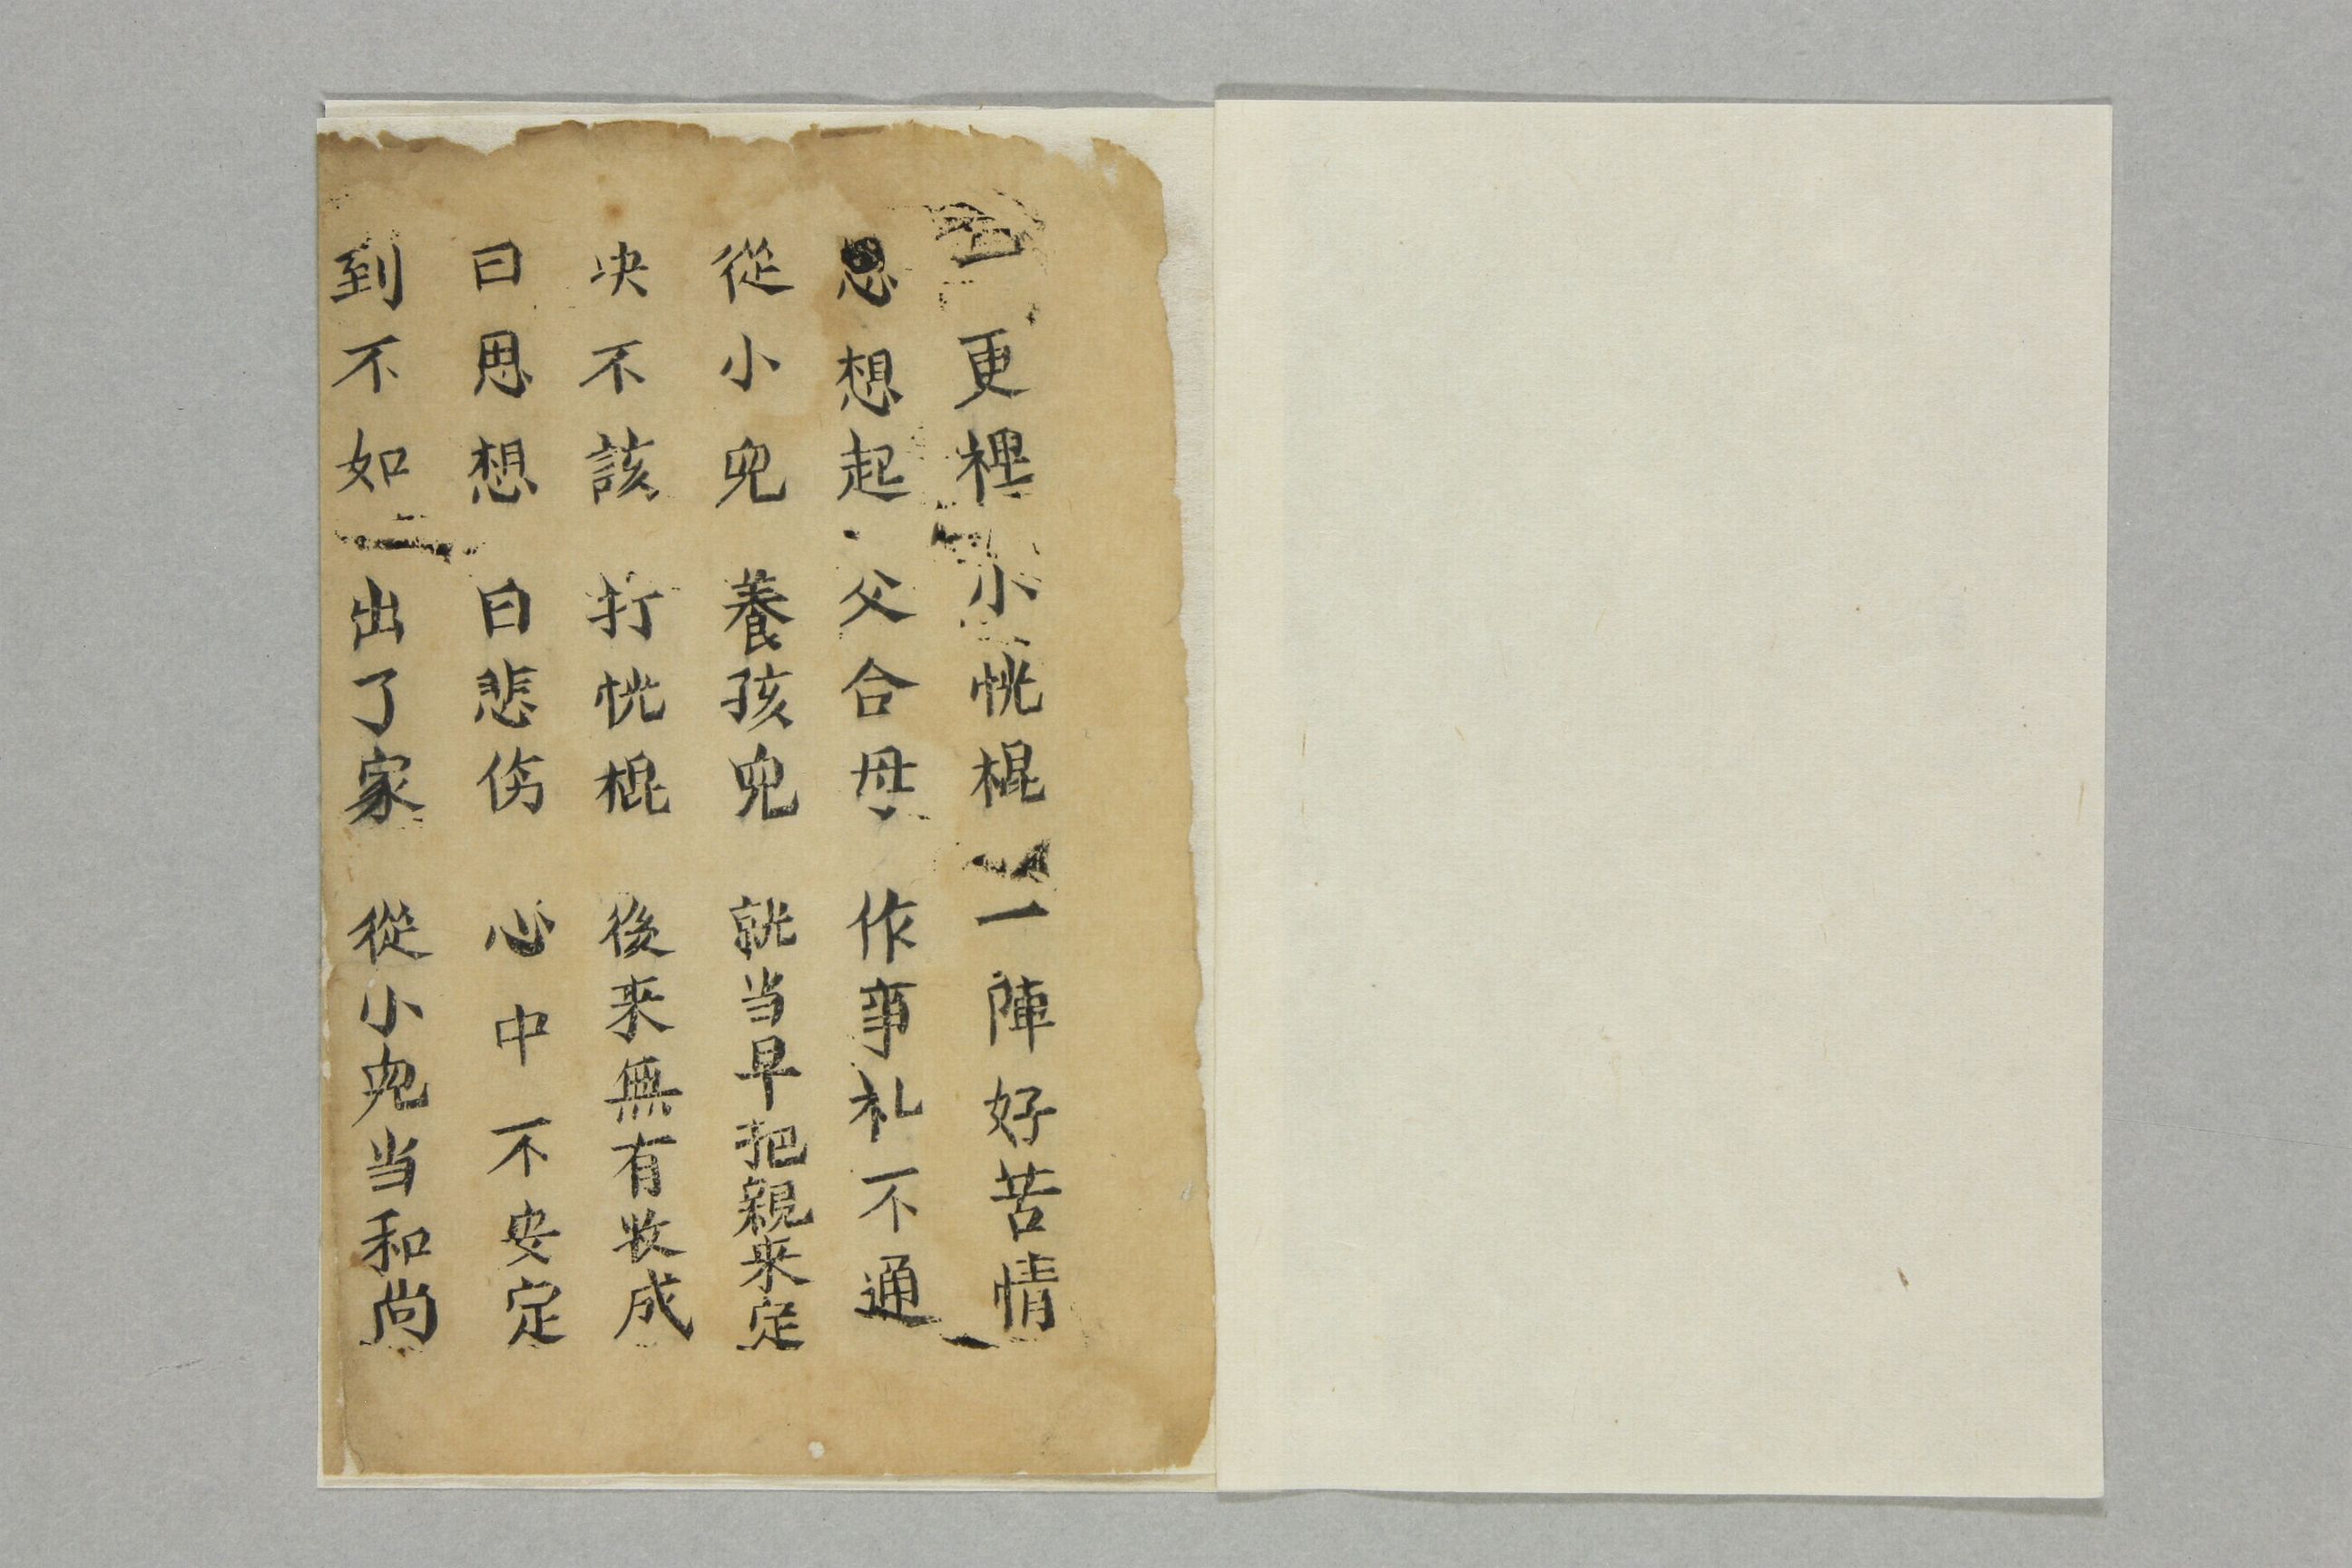 一更裡 小恍棍 一陣好苦情
思想起 父合母 作事礼不通
從小兒 養孩兒 就当早把親来定
决不該 打恍棍 後来無有收成
日思想 日悲伤 心中不安定
到不如 出了家 從小兒当和尚